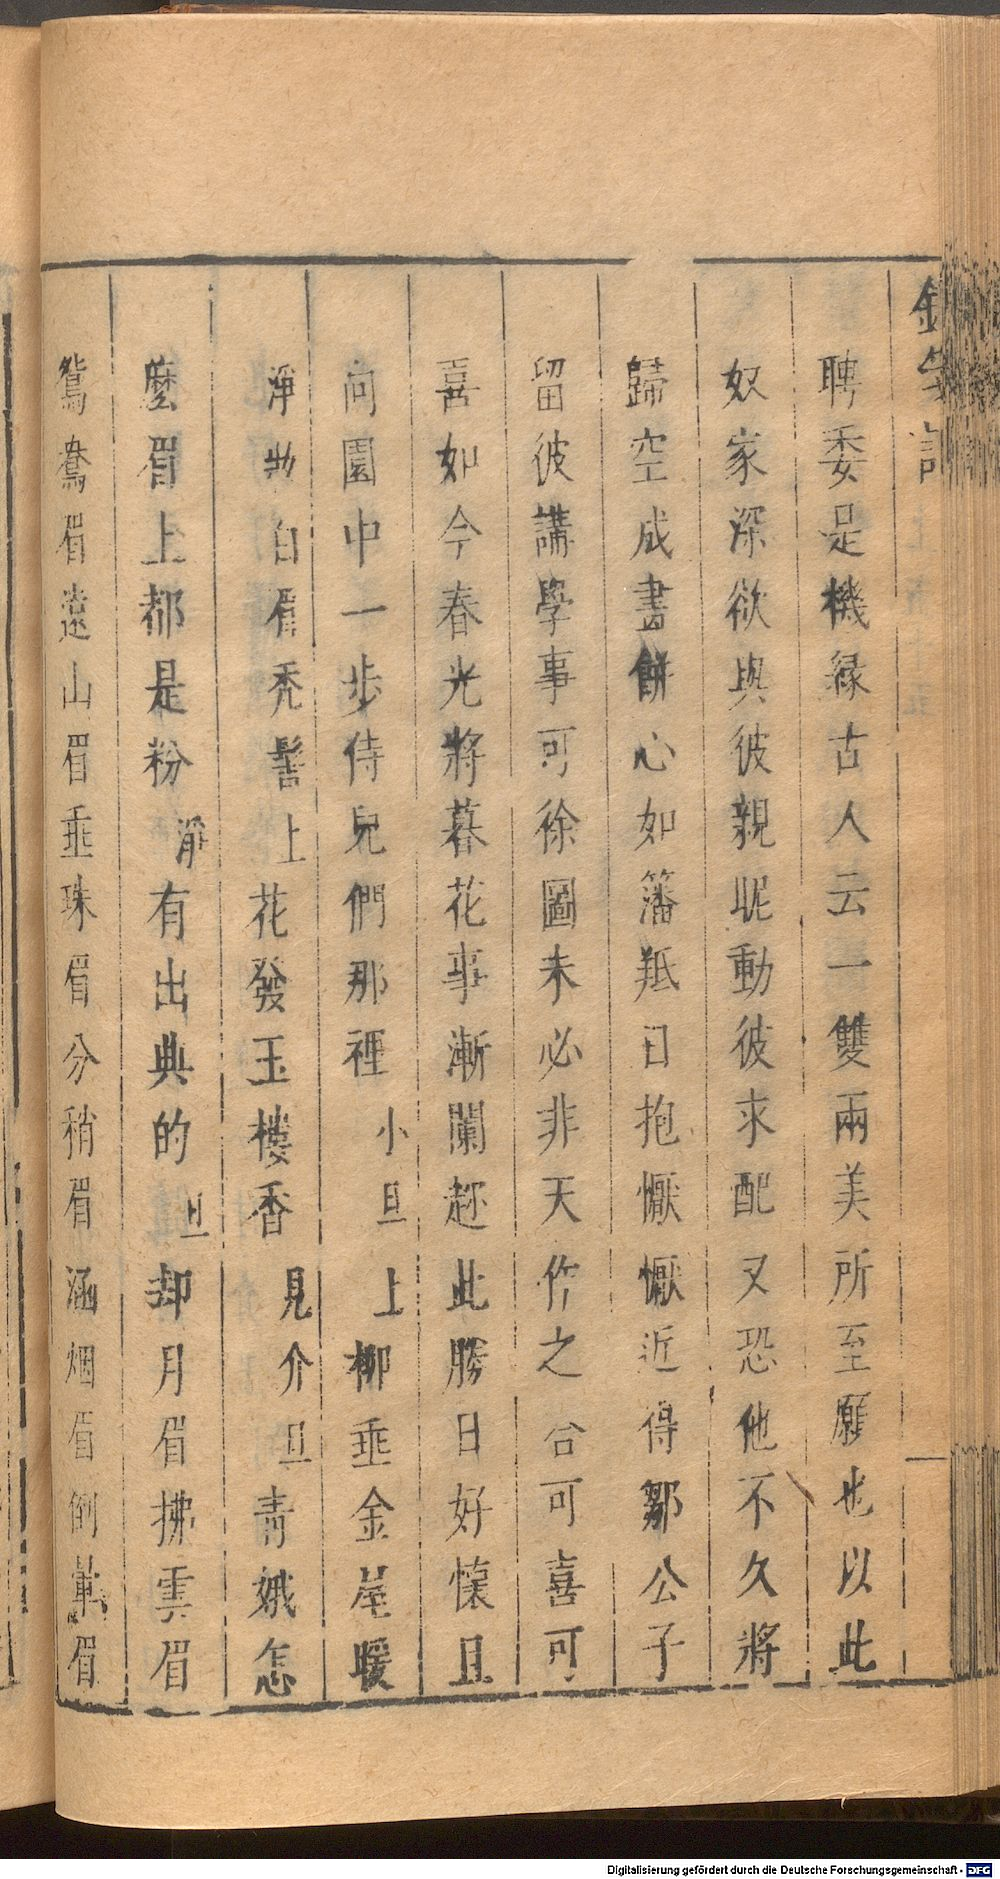 聘委是機緣古人云一雙兩美所至願也以此
奴家深欲與彼親昵動彼求配又恐他不久將
歸空成畫餅心如籓羝日抱懨懨近得鄒公子
留彼講學事可徐圖未必非天作之合可喜可
喜如今春光將暮花事漸闌趂此勝日好懷且
向園中一步侍兒們那裡小旦上柳垂金尾暖
淨扮白眉禿髻上花發玉樓香見介旦青娥怎
麼眉上都是粉淨有出典的旦却月眉拂雲眉
鴛鴦眉遠山眉垂珠眉分稍眉涵烟眉倒暈眉
Digitalisierung gefördert durch die Deutsche Forschungsgemeinschaft - DFG